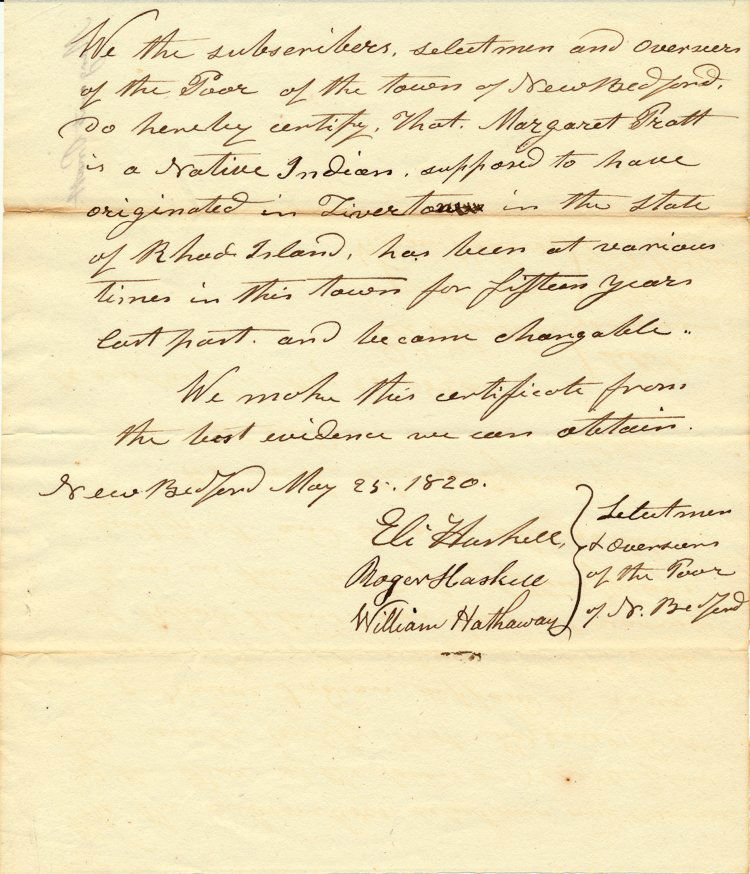 We the subscribers, selectmen and Overseers
of the Poor of the town of New Bedford,
Do hereby certify, That Margaret Pratt
is a Native Indian, supposed to have
originated in Tiverton in the State
of Rhod Island, has been at various
times in this town for fifteen years
last past. and became changable..
We make this certificate from
the best evidence we can obtain.
New Bedford May 25. 1820.
Eli Haskell,
Roger Haskell
William Hathaway
Selectmen
& Overseers
of the Poor
of N. Bedford